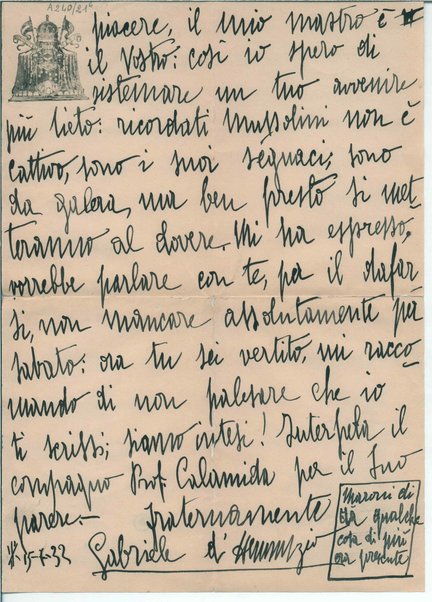 A260/21°
piacere, il mio mastro è
il Vostro: così io spero di
sistemare un tuo avvenire
più lieto: ricordati Mussolini non è
cattivo, sono i suoi seguaci; sono
da galera, ma ben presto si met-
teranno al dovere. Mi ha espresso,
vorrebbe parlare con te, per il dafar-
si, non mancare assolutamente pa
sabato: ora tu sei vertito, mi racco
mando di non palesare che io
ti scrissi; siamo intesi! Interpela il
compagno Prof. Calamida per il Suo
parere.- fraternamente
15-X-32 Gabriele d'Annunzio
Maroni di
da qualche
cosa di più
era presente